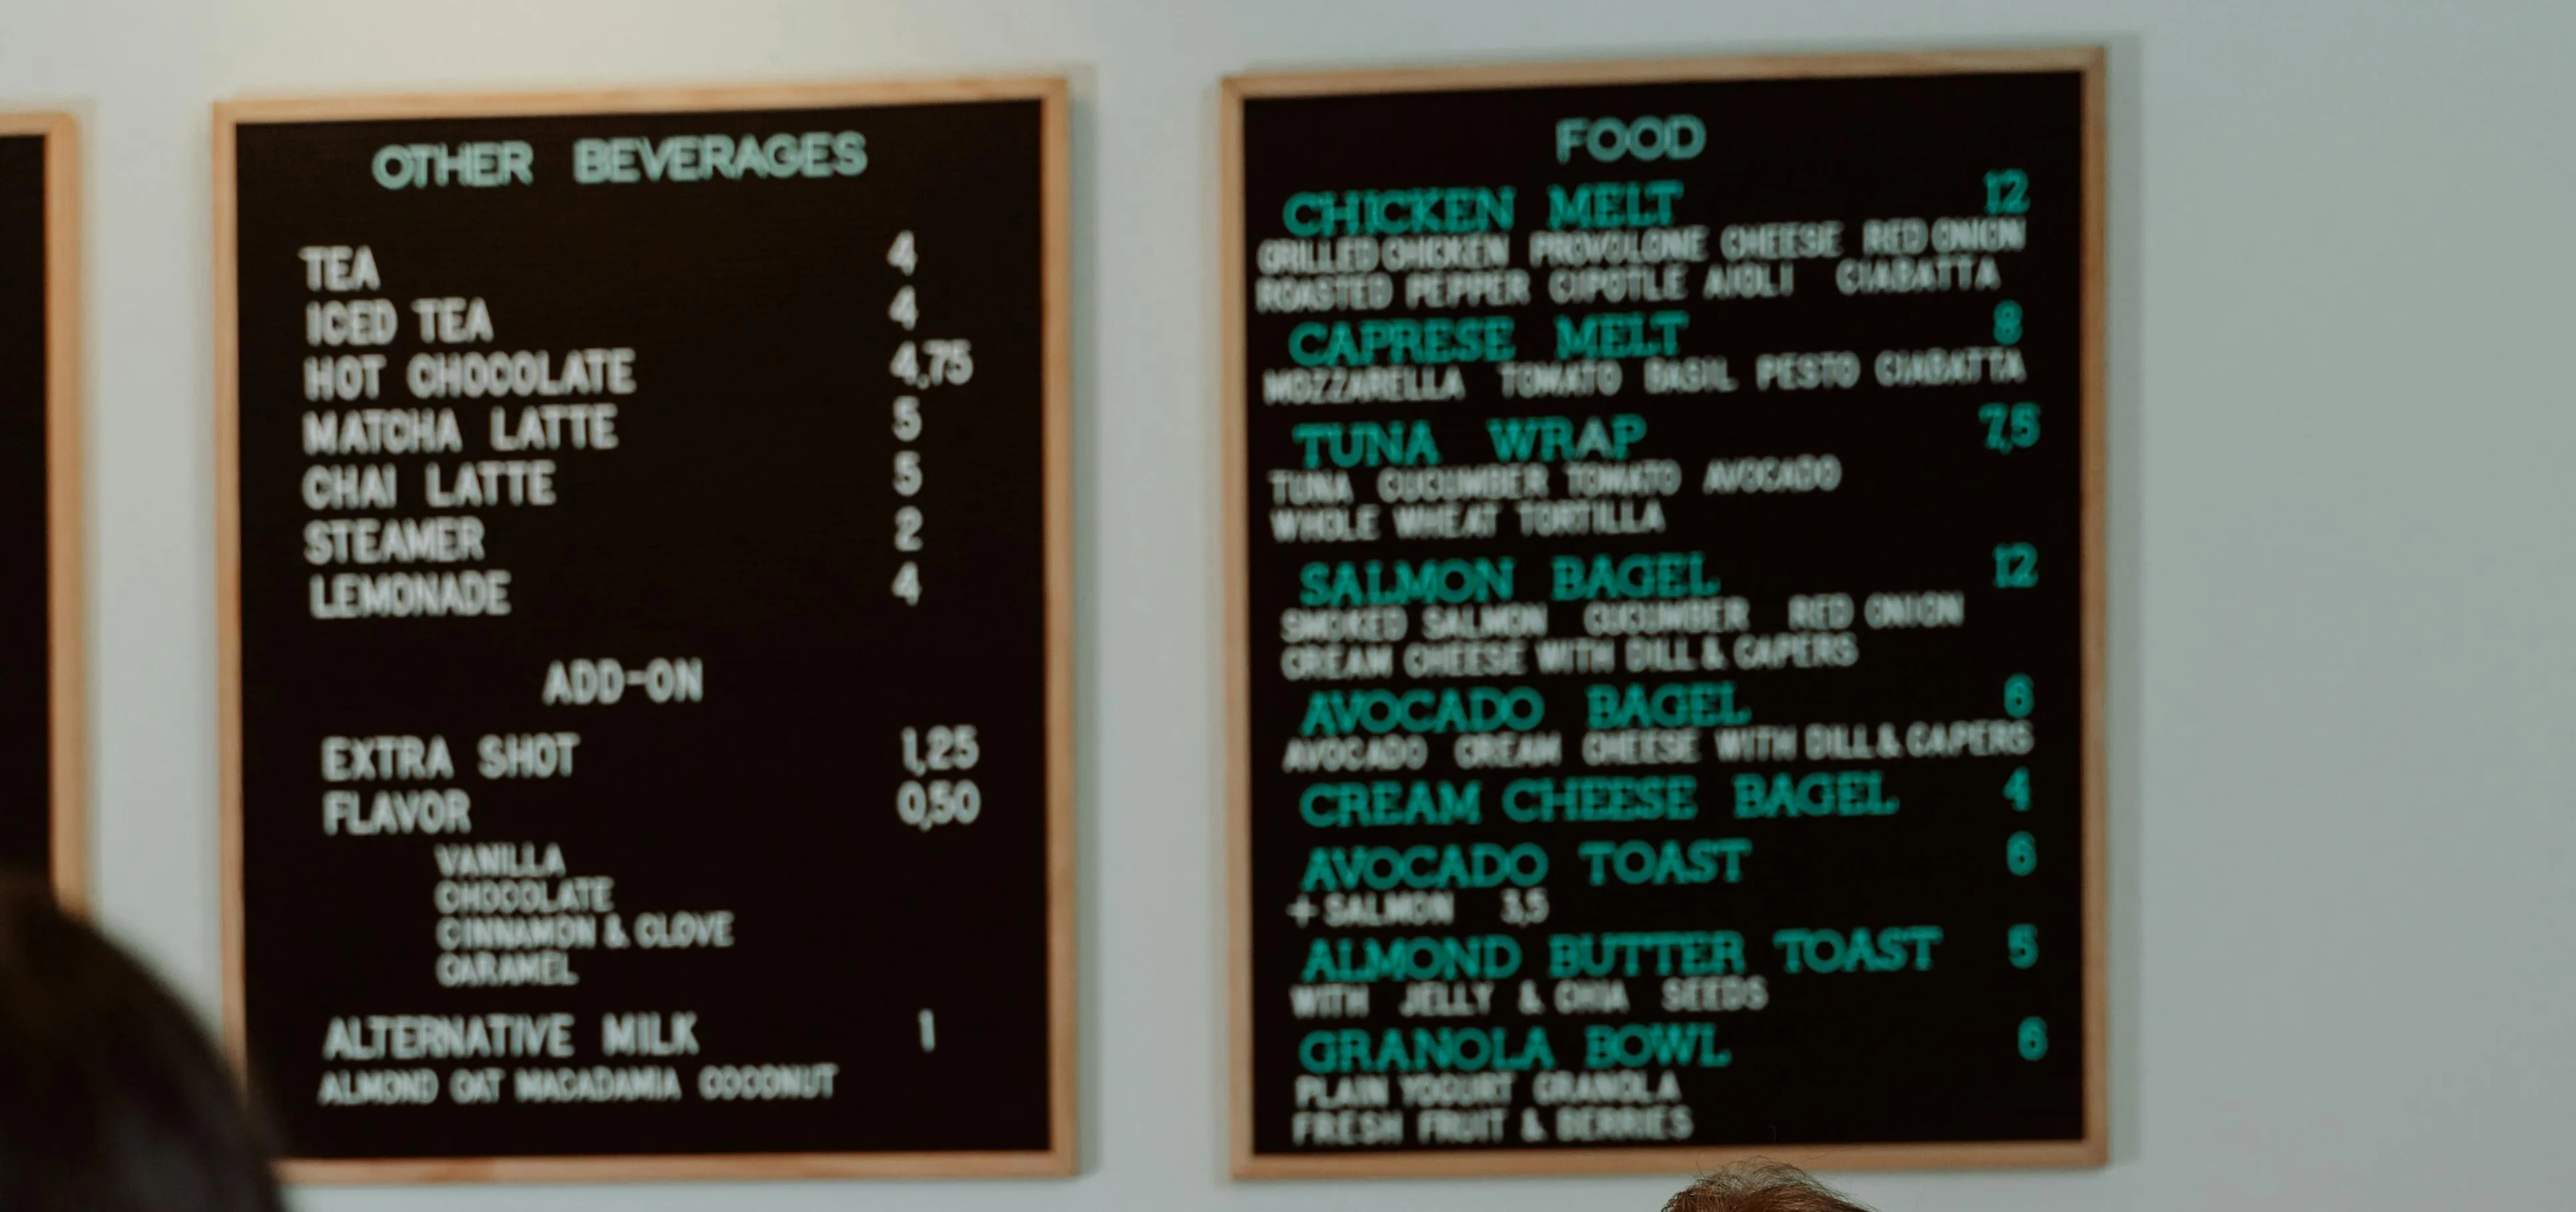 OTHER BEVERAGES
TEA 4
ICED TEA 4
HOT CHOCOLATE 4,75
MATCHA LATTE 5
CHAI LATTE 5
STEAMER 2
LEMONADE 4
ADD-ON
EXTRA SHOT 1,25
FLAVOR 0,50
VANILLA
CHOCOLATE
CINNAMON & CLOVE
CARAMEL
ALTERNATIVE MILK 1
ALMOND OAT MACADAMIA COCONUT
FOOD
CHICKEN MELT 12
GRILLED CHICKEN PROVOLONE CHEESE RED ONION
ROASTED PEPPER CIPOTLE AIOLI CIABATTA
CAPRESE MELT 8
MOZZARELLA TOMATO BASIL PESTO CIABATTA
TUNA WRAP 7,5
TUNA CUCUMBER TOMATO AVOCADO
WHOLE WHEAT TORTILLA
SALMON BAGEL 12
SMOKED SALMON CUCUMBER RED ONION
CREAM CHEESE WITH DILL & CAPERS
AVOCADO BAGEL 6
AVOCADO CREAM CHEESE WITH DILL & CAPERS
CREAM CHEESE BAGEL 4
AVOCADO TOAST 6
+ SALMON 3,5
ALMOND BUTTER TOAST 5
WITH JELLY & CHIA SEEDS
GRANOLA BOWL 6
PLAIN YOGURT GRANOLA
FRESH FRUIT & BERRIES